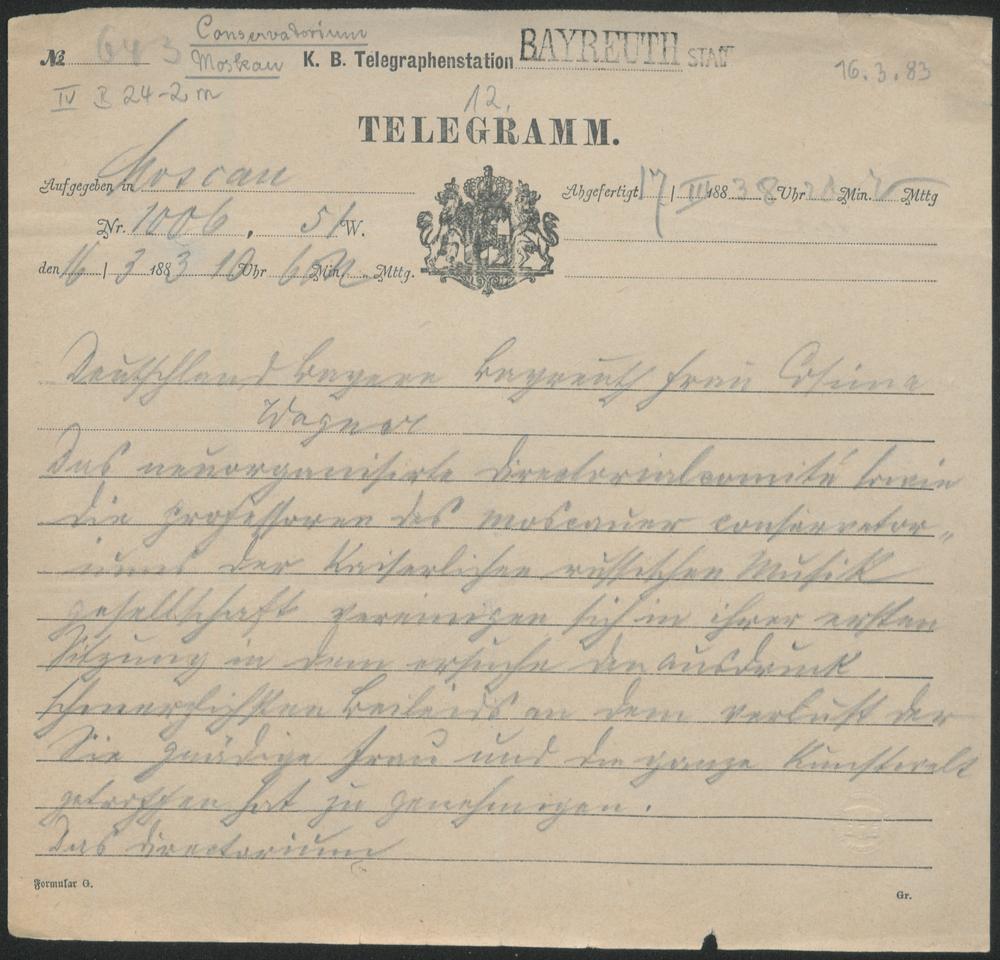 Conservatorium
№ 643 Moskau K. B. Telegraphenstation BAYREUTH STADT
16.3.83
IV B 24-2 m
12.
TELEGRAMM.
Aufgegeben in Moscau
Abgefertigt 17 / III 188 3 8 Uhr Min. Mttg
Nr. 1006, 51 W.
den 16 / 3 188 3 10 Uhr Min. Mttg.
Deutschland Bayern Bayreuth Frau Cosima
Wagner
Das neuorganisirte Directorialcomité sowie
die professoren des moscauer conservator-
iums der Kaiserlichen russischen Musik
gesellschaft vereinigen sich in ihrer ersten
Sitzung in dem ersuche den ausdruck
schmerzlichsten Beileids an dem verlust der
Sie gnädige Frau und die ganze Kunstwelt
getroffen hat zu genehmigen.
Das Directorium
Formular G.
Gr.